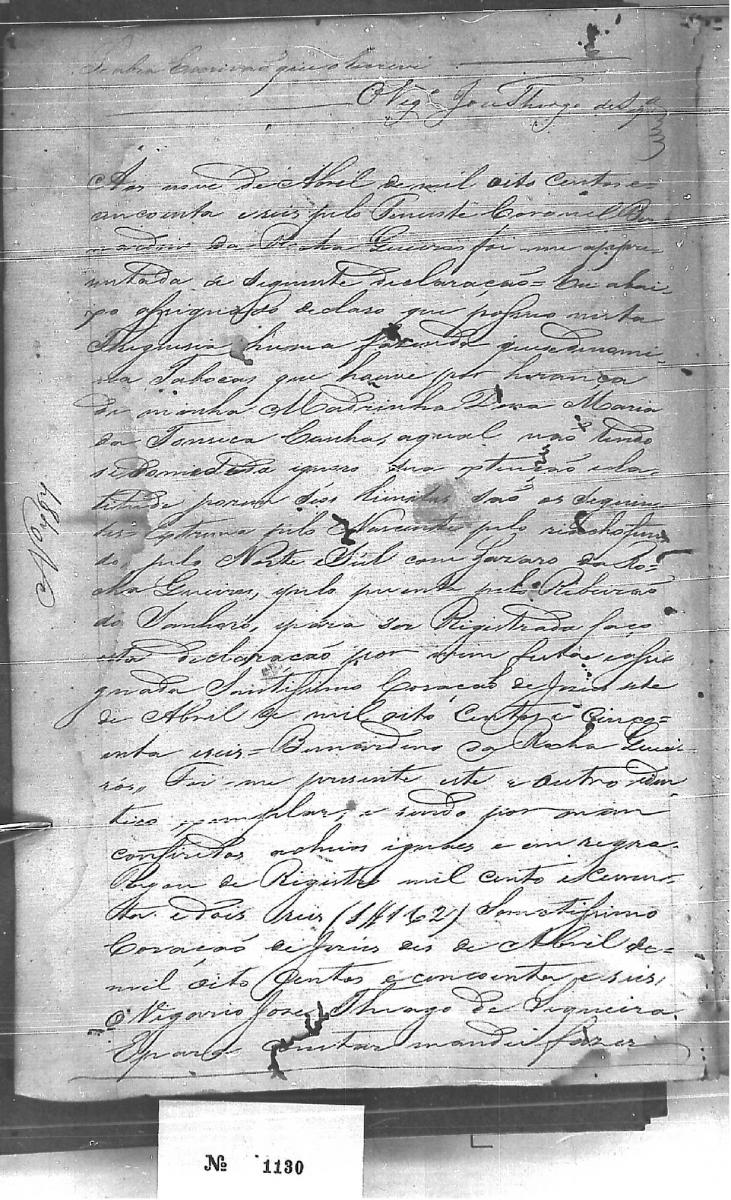 escrivaõ que o escrevi
O Vigrº José Thiago de Siqrª
Aos nove de Abril de mil oito centos e
cincoenta e seis pelo Tenente Coronel Ber
nardino da Rocha Gueiros foi-me appre-
sentada a seguinte declaracaõ = Eu abai-
xo assignado declaro que possuo nesta
Freguesia huma fazenda que se denomi
na Tabocas que houve por herança
de minha Madrinha Dona Maria
da Fonseca Cunha, a qual naõ tendo
sido medida ignoro sua extençaõ e la-
titude, porem seos limites saõ os seguin
tes = Extrema pelo Nascente pelo riacho fun
do, pelo Norte e Sul com Lazaro da Ro-
cha Gueiros, e pelo puente pelo Ribeiraõ
do Sanharó, e para ser Registrada faço
esta declaracaõ por mim feita e assi
gnada Santissimo Coracaõ de Jesus sete
de Abril de mil oito centos e cinco-
enta e seis = Bernardino da Rocha Guei-
ros,, Foi-me presente este e outro iden
tico exemplar, e sendo por mim
conferidos achei-os iguaes e em regra.
Pagou de Registro mil cento e secen-
ta e dois reis (1$162) Santissimo
Coracaõ de Jesus des de Abril de
mil oito centos e cincoenta e seis,
O Vigario José Thiago de Siqueira.
E para constar mandei fazer
Nº 187
Nº 1130